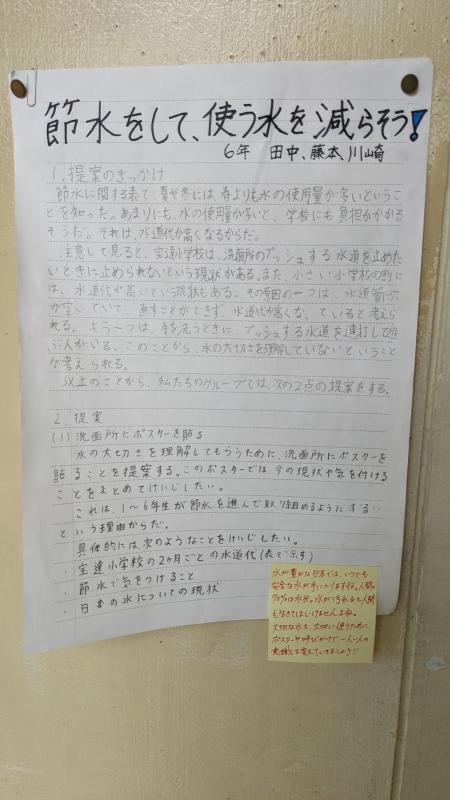 節水をして、使う水を減らそう!
6年 田中、藤本、川崎
1.提案のきっかけ
節水に関する表で、夏や冬には、春よりも水の使用量が多いというこ
とを知った。あまりにも、水の使用量が多いと、学校にも負担がかかる
そうだ。それは、水道代が高くなるからだ。
注意して見ると、宝達小学校は、洗面所のプッシュする水道を止めた
いときに止められないという現状がある。また、小さい小学校の割に
は、水道代が高いという現状もある。その原因の一つは、水道管に穴
が空いていて、直すことができず、水道代が高くなっていると考えら
れる。もう一つは、手を洗うときに、プッシュする水道を連打して遊
ぶ人がいる。このことから、水の大切さを理解していないということ
が考えられる。
以上のことから、私たちのグループでは、次の2点の提案をする。
2.提案
(1)洗面所にポスターを貼る
水の大切さを理解してもらうために、洗面所にポスターを
貼ることを提案する。このポスターでは、今の現状や気を付ける
ことをまとめてけいじしたい。
これは、1～6年生が節水を進んで取り組めるようにするい
という理由からだ。
具体的には、次のようなことをけいじしたい。
・宝達小学校の2ヶ月ごとの水道代(表で示す)
・節水で気をつけること
・日本の水についての現状
水が豊かな日本では、いつでも
安全な水が手に入りますね。人間の
70%は水分。水がうばわれると人間
も生きてはいけませんよね。
大切な水を、大切に使うために、
ポスターや呼びかけで一人一人の
意識を変えていきましょう!!